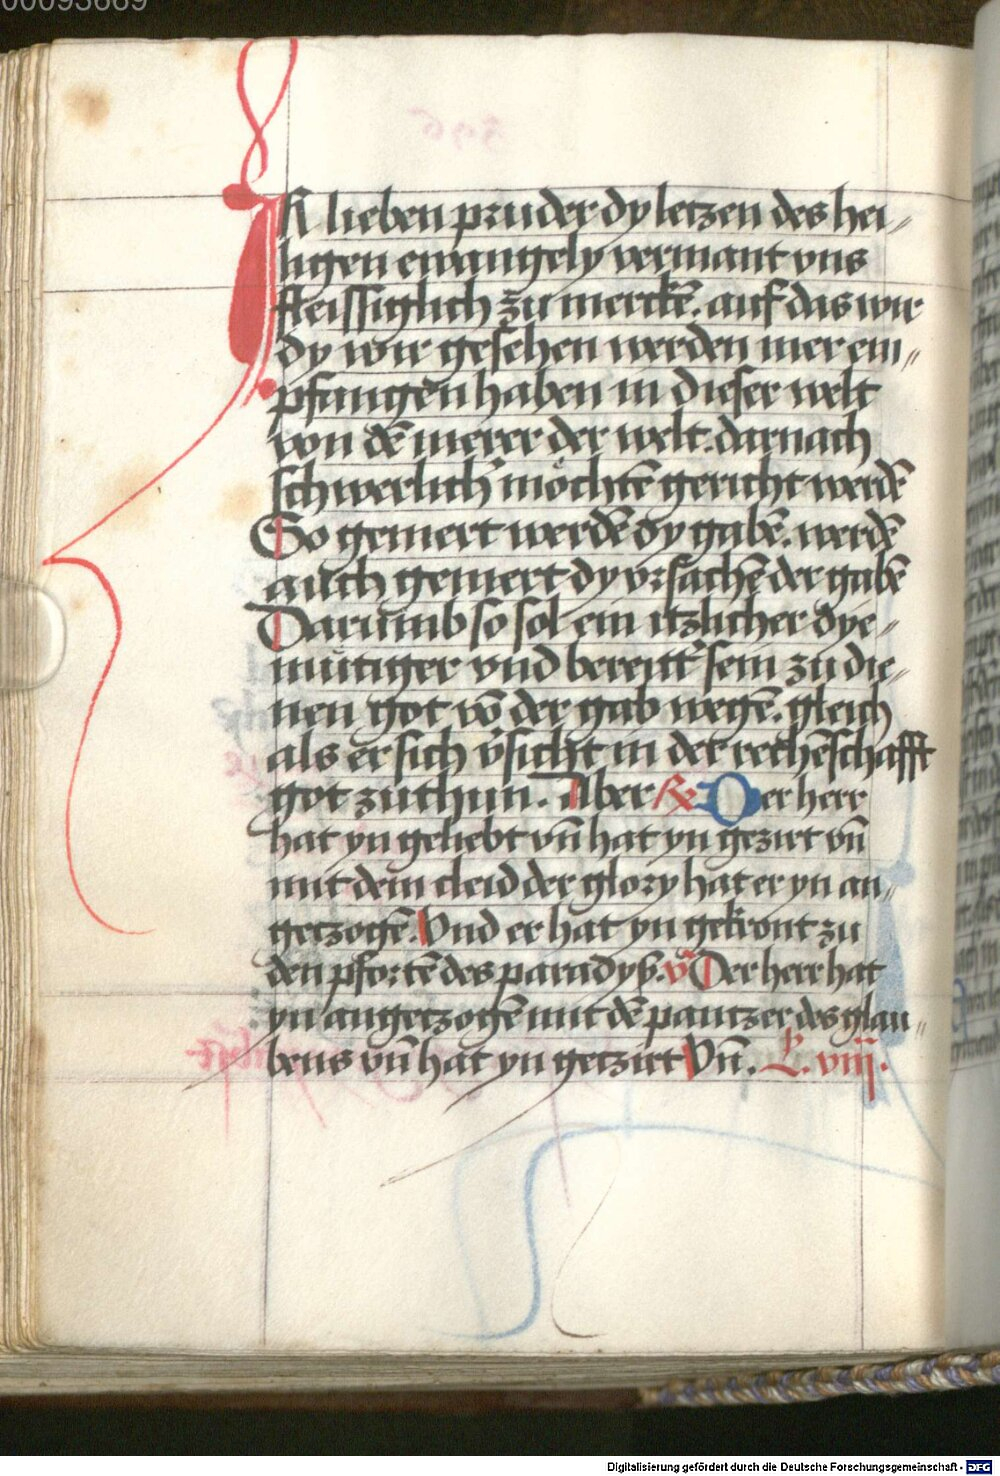 00093669
IR lieben pruder dy letzen des hei„
ligen ewangely vermant vns
fleissiglich zu merckē. auf das wir
dy wir gesehen werden mer em„
pfangen haben in dieser welt
von dē merer der welt. darnach
schwerlich möchtē gericht werdē
So gemert werdē dy gabē. werdē
auch gemert dy vrsachē der gabē
Darumb so sol ein itzlicher dye„
mutiger vnd bereitt sein zu die„
nen got vō der gab wegē. gleich
als er sich v̄sicht in der rechēschafft
got zuthun. Aber ℞ Der herr
hat yn geliebt vn̄ hat yn gezirt vn̄
mit dem cleid der glory hat er yn an„
getzogē. Vnd er hat yn gekront zu
den pfortē des paradyß. v̄ Der herr hat
yn angetzogē mit dē pantzer des glau„
bens vn̄ hat yn getzirt Vn̄. L. viij.
Digitalisierung gefördert durch die Deutsche Forschungsgemeinschaft - DFG